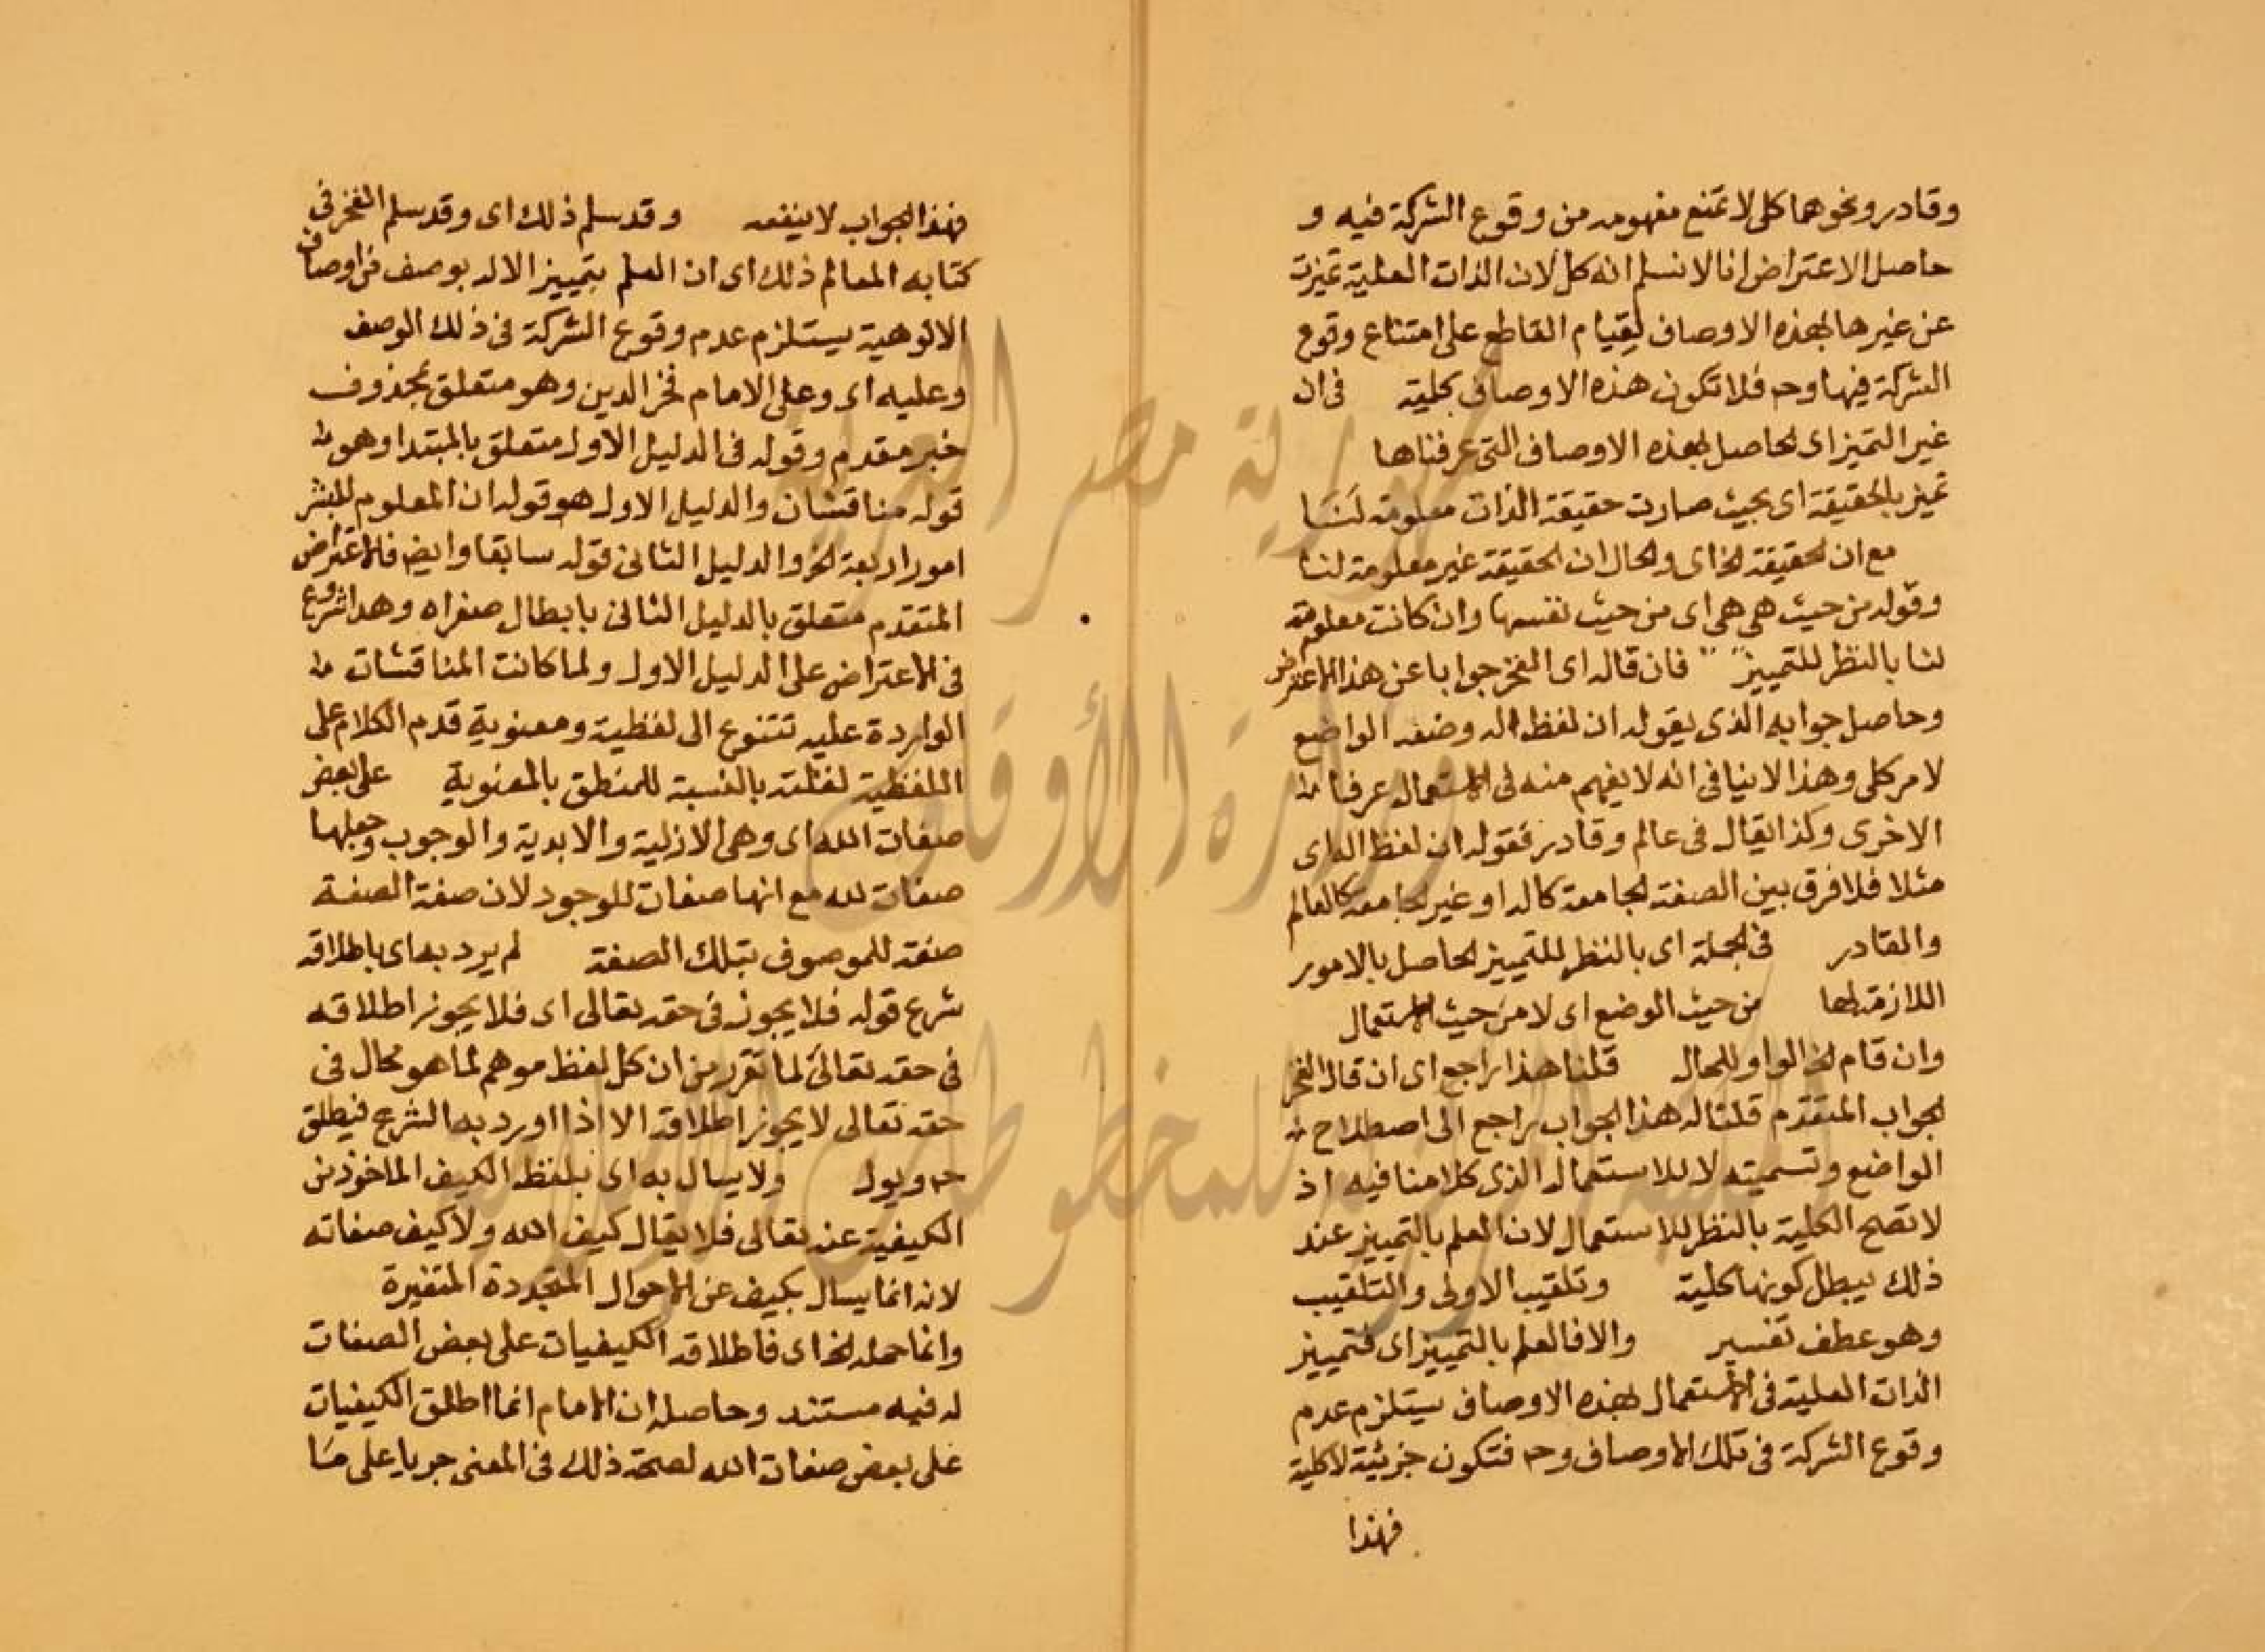 وقادر ونحوهما كلى لا تمنع مفهومه من وقوع الشركة فيه و
حاصل الاعتراض انا لا نسلم انه كل لان الذات العلية تميزت
عن غيرها بهذه الاوصاف لقيام القاطع على امتناع وقوع
الشركة فيها وح فلا تكون هذه الاوصاف بكلية فى ان
غير التميز اى الحاصل بهذه الاوصاف التى عرفناها
تميز بالحقيقة اى بحيث صارت حقيقة الذات معلومة لنا
مع ان الحقيقة الخ اى والحال ان الحقيقة غير معلومة لنا
وقوله من حيث هى هى اى من حيث نفسها وان كانت معلومة
لنا بالنظر للتمييز فان قال اى الفخر جوابا عن هذا الاعتراض
وحاصل جوابه الذى يقوله ان لفظ اله وضعه الواضع
لامر كلى وهذا لا ينافى انه لا يفهم منه فى الاستعمال عرفا
الاخرى وكذا يقال فى عالم وقادر فقوله ان لفظ اله اى
مثلا فلا فرق بين الصفة الجامعة كاله او غير الجامعة كالعالم
والقادر فى الجملة اى بالنظر للتمييز الحاصل بالامور
اللازمة لها من حيث الوضع اى لا من حيث الاستعمال
وان قام الخ الواو للحال قلنا هذا راجع اى ان قال الفخر
الجواب المتقدم قلنا له هذا الجواب راجع الى اصطلاح
الواضع وتسميته لا للاستعمال الذى كلامنا فيه اذ
لا تصح الكلية بالنظر للاستعمال لان العلم بالتمييز عند
ذلك يبطل كونها كلية وتلقيب الاولى والتلقيب
وهو عطف تفسير والا فالعلم بالتمييز اى فتمييز
الذات العلية فى الاستعمال بهذه الاوصاف يستلزم عدم
وقوع الشركة فى تلك الاوصاف وح فتكون جزئية لا كلية
فهذا
فهذا الجواب لا ينفعه وقد سلم ذلك اى وقد سلم الفخر فى
كتابه المعالم ذلك اى ان العلم بتمييز الاله بوصف من اوصاف
الالوهية يستلزم عدم وقوع الشركة فى ذلك الوصف
وعليه اى وعلى الامام فخر الدين وهو متعلق بمحذوف
خبر مقدم وقوله فى الدليل الاول متعلق بالمبتدا وهو
قوله مناقشان والدليل الاول هو قوله ان المعلوم للبشر
امور اربعة الخ والدليل الثانى قوله سابقا وايض فالاعتراض
المتقدم متعلق بالدليل الثانى بابطال صغراه وهذا شروع
فى الاعتراض على الدليل الاول ولما كانت المناقشات
الواردة عليه تتنوع الى لفظية ومعنوية قدم الكلام على
اللفظية لقلته بالنسبة للمنطق بالمعنوية على بعض
صفات الله اى وهى الازلية والابدية والوجوب وجعلها
صفات لله مع انها صفات للوجود لان صفة الصفة
صفة للموصوف بتلك الصفة لم يرد به اى باطلاقه
شرع قوله فلا يجوز فى حقه تعالى اى فلا يجوز اطلاقه
فى حقه تعالى لما تقرر من ان كل لفظ موهم لما هو محال فى
حقه تعالى لا يجوز اطلاقه الا اذا اورد به الشرع فيطلق
ح ويول ولا يسال به اى بلفظ الكيف الماخوذ من
الكيفية عنه تعالى فلا يقال كيف الله ولا كيف صفاته
لانه انما يسال بكيف عن الاحوال المتجددة المتغيرة
وانما حمله الخ اى فاطلاقه الكيفيات على بعض الصفات
له فيه مستند وحاصله ان الامام انما اطلق الكيفيات
على بعض صفات الله لصحة ذلك فى المعنى جريا على ما